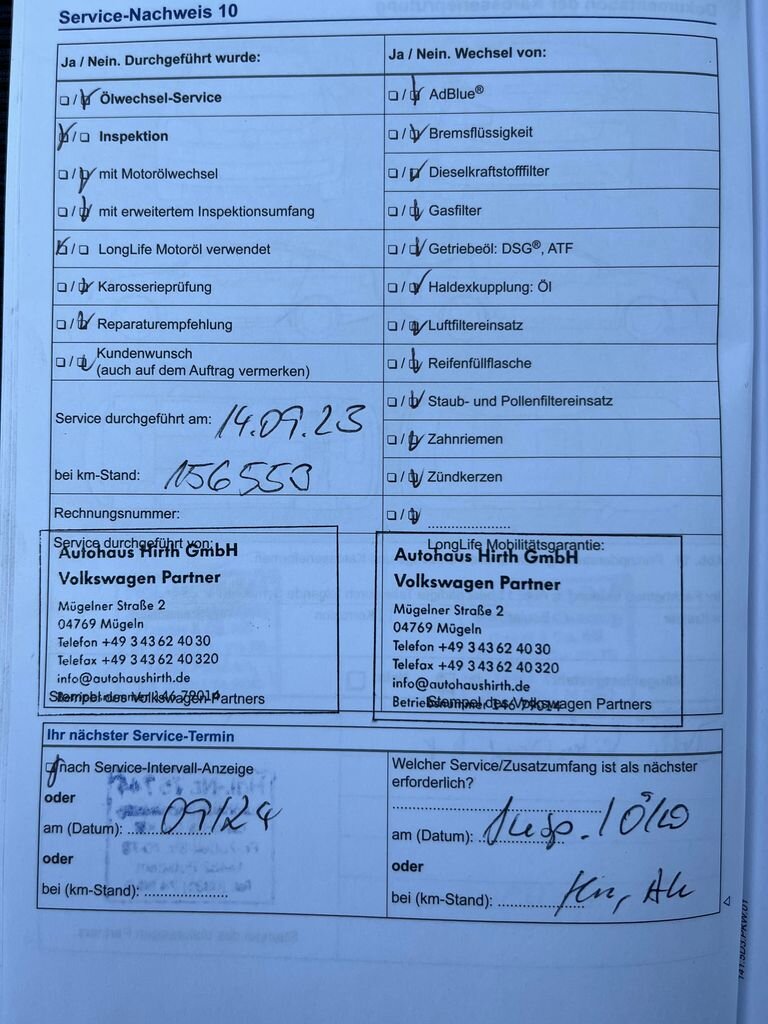 Service-Nachweis 10
Ja / Nein. Durchgeführt wurde:
☐/☑ Ölwechsel-Service
☑/☐ Inspektion
☐/☑ mit Motorölwechsel
☐/☑ mit erweitertem Inspektionsumfang
☑/☐ LongLife Motoröl verwendet
☐/☑ Karosserieprüfung
☐/☑ Reparaturempfehlung
☐/☑ Kundenwunsch
(auch auf dem Auftrag vermerken)
Service durchgeführt am: 14.09.23
bei km-Stand: 156553
Rechnungsnummer:
Ja / Nein. Wechsel von:
☐/☑ AdBlue®
☐/☑ Bremsflüssigkeit
☐/☑ Dieselkraftstofffilter
☐/☑ Gasfilter
☐/☑ Getriebeöl: DSG®, ATF
☐/☑ Haldexkupplung: Öl
☐/☑ Luftfiltereinsatz
☐/☑ Reifenfüllflasche
☐/☑ Staub- und Pollenfiltereinsatz
☐/☑ Zahnriemen
☐/☑ Zündkerzen
☐/☑
Service durchgeführt von:
Autohaus Hirth GmbH
Volkswagen Partner
Mügelner Straße 2
04769 Mügeln
Telefon +49 3 43 62 40 30
Telefax +49 3 43 62 40 320
info@autohaushirth.de
Betriebsnummer 146 79014
Stempel des Volkswagen Partners
LongLife Mobilitätsgarantie:
Autohaus Hirth GmbH
Volkswagen Partner
Mügelner Straße 2
04769 Mügeln
Telefon +49 3 43 62 40 30
Telefax +49 3 43 62 40 320
info@autohaushirth.de
Betriebsnummer 146 79014
Stempel des Volkswagen Partners
Ihr nächster Service-Termin
☑ nach Service-Intervall-Anzeige
oder
am (Datum): 09/24
oder
bei (km-Stand):
Welcher Service/Zusatzumfang ist als nächster
erforderlich?
am (Datum): Insp. / Ölw
oder
bei (km-Stand):
141.5D3.PKW.01